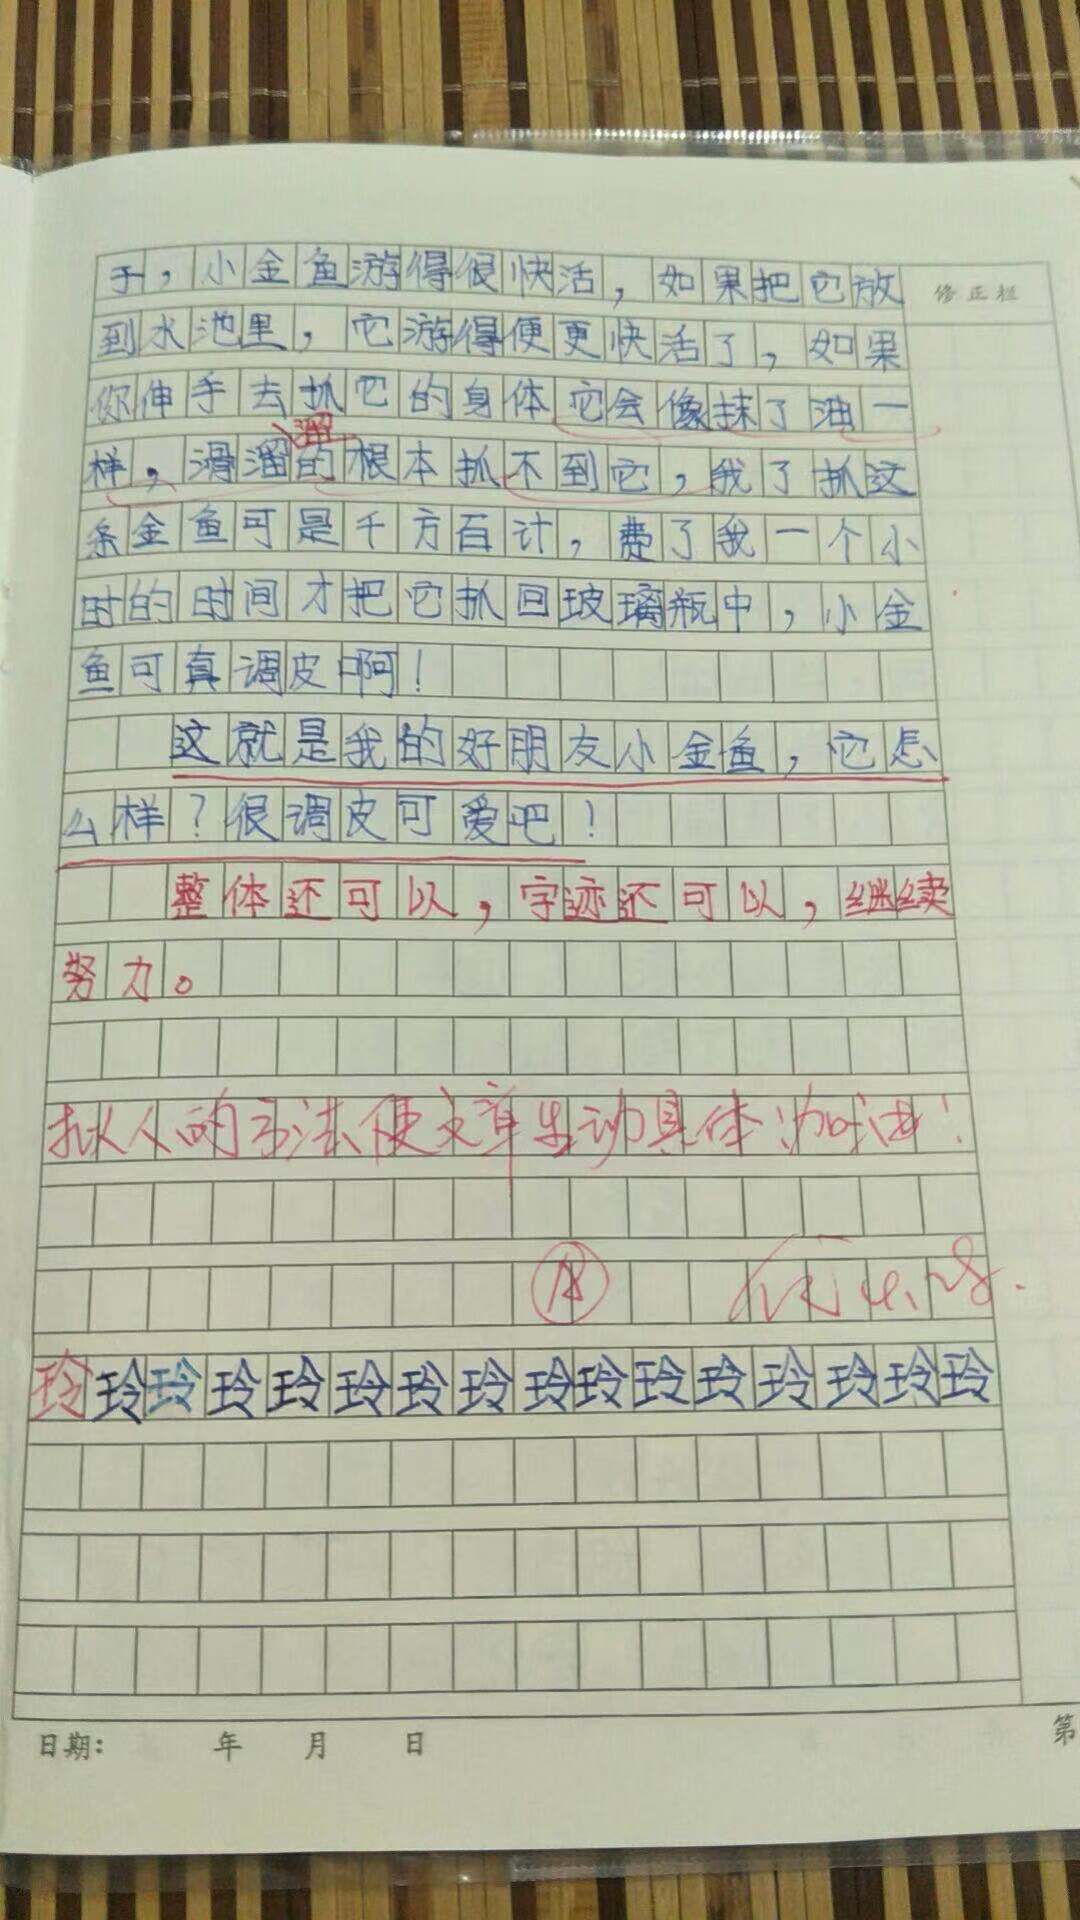 于，小金鱼游得很快活，如果把它放
修正栏
到水池里，它游得便更快活了，如果
你伸手去抓它的身体它会像抹了油一
溜
样，滑溜的根本抓不到它，我了抓这
条金鱼可是千方百计，费了我一个小
时的时间才把它抓回玻璃瓶中，小金
鱼可真调皮啊！
这就是我的好朋友小金鱼，它怎
么样？很调皮可爱吧！
整体还可以，字迹还可以，继续
努力。
拟人的写法使文章生动具体，加油！
A
玲玲玲玲玲玲玲玲玲玲玲玲玲玲玲玲
日期： 年 月 日
第